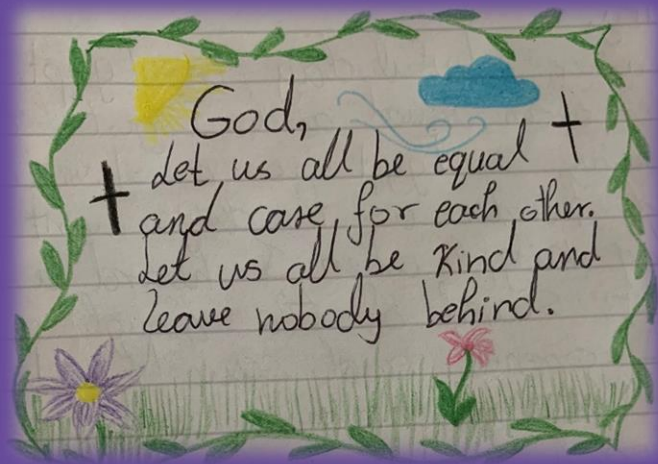 God,
Let us all be equal
and care for each other.
Let us all be Kind and
leave nobody behind.